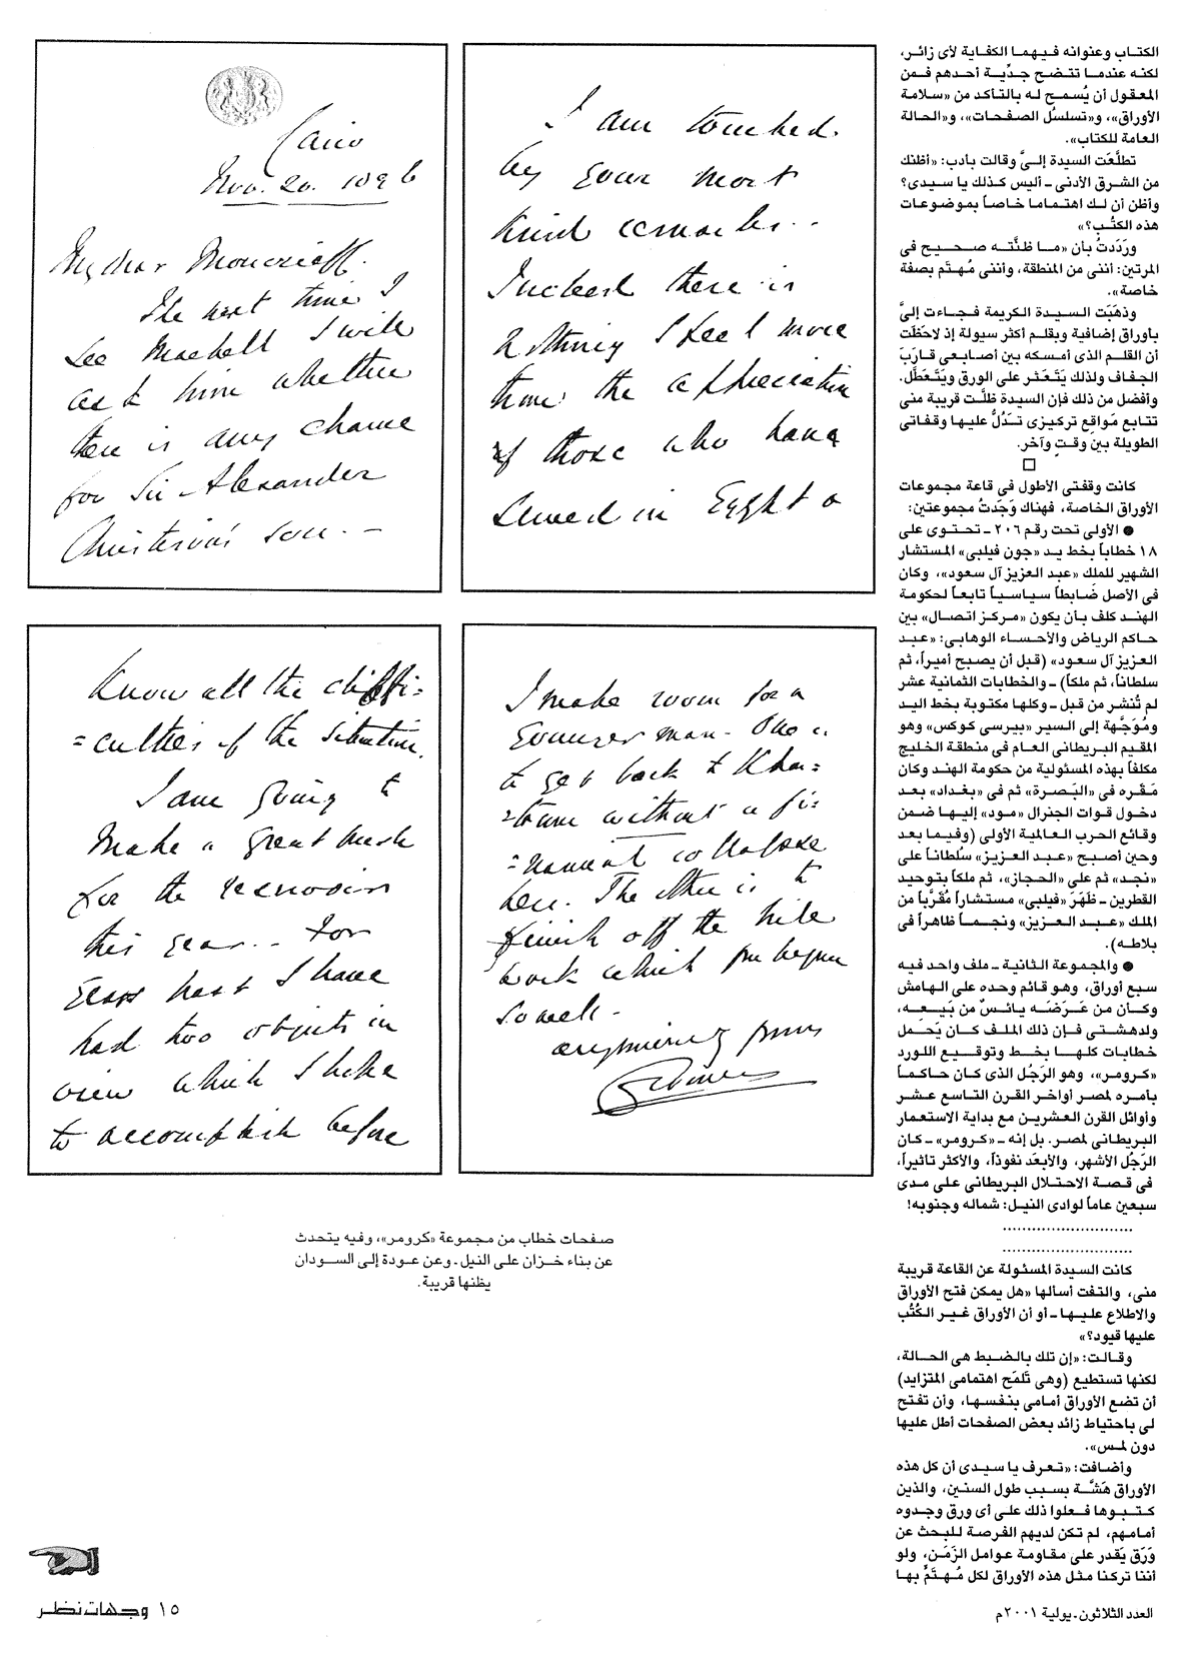 الكتاب وعنوانه فيهما الكفاية لأى زائر،
لكنه عندما تتضح جدِّية أحدهم فمن
المعقول أن يُسمح له بالتأكد من «سلامة
الأوراق»، و«تسلسُل الصفحات»، و«الحالة
العامة للكتاب».
تطلَّعَت السيدة إلىَّ وقالت بأدب: «أظنك
من الشرق الأدنى ـ أليس كذلك يا سيدى؟
وأظن أن لك اهتماما خاصاً بموضوعات
هذه الكتُب؟»
ورَدَدتُ بأن «ما ظنَّته صحيح فى
المرتين: أننى من المنطقة، وأننى مُهتَم بصفة
خاصة».
وذهَبَت السيدة الكريمة فجاءت إلىَّ
بأوراق إضافية وبقلم أكثر سيولة إذ لاحَظَت
أن القلم الذى أمسكه بين أصابعى قارَبَ
الجفاف ولذلك يَتَعَثر على الورق ويَتَعَطَّل.
وأفضل من ذلك فإن السيدة ظلَّت قريبة منى
تتابع مَواقع تركيزى تَدُلُّ عليها وقفاتى
الطويلة بين وقتٍ وآخر.
كانت وقفتى الأطول فى قاعة مجموعات
الأوراق الخاصة، فهناك وَجَدتُ مجموعتين:
● الأولى تحت رقم ٢٠٦ ـ تحتوى على
١٨ خطاباً بخط يد «جون فيلبى» المستشار
الشهير للملك «عبد العزيز آل سعود»، وكان
فى الأصل ضَابطاً سياسياً تابعاً لحكومة
الهند كلف بأن يكون «مركز اتصال» بين
حاكم الرياض والأحساء الوهابى: «عبد
العزيز آل سعود» (قبل أن يصبح أميراً، ثم
سلطاناً، ثم ملكاً) ـ والخطابات الثمانية عشر
لم تُنشر من قبل ـ وكلها مكتوبة بخط اليد
ومُوَجَّهة إلى السير «بيرسى كوكس» وهو
المقيم البريطانى العام فى منطقة الخليج
مكلفاً بهذه المسئولية من حكومة الهند وكان
مَقَّره فى «البَصرة» ثم فى «بغداد» بعد
دخول قوات الجنرال «مود» إليها ضمن
وقائع الحرب العالمية الأولى (وفيما بعد
وحين أصبح «عبد العزيز» سلُطاناً على
«نجد» ثم على «الحجاز»، ثم ملكاً بتوحيد
القطرين ـ ظَهَرَ «فيلبى» مستشاراً مُقَرَّباً من
الملك «عبد العزيز» ونجماً ظاهراً فى
بلاطه).
● والمجموعة الثانية ـ ملف واحد فيه
سبع أوراق، وهو قائم وحده على الهامش
وكان من عَرَضَه يائسٌ من بَيعِه،
ولدهشتى فإن ذلك الملف كان يَحمل
خطابات كلها بخط وتوقيع اللورد
«كرومر»، وهو الرَجُل الذى كان حاكماً
بأمره لمصر أواخر القرن التاسع عشر
وأوائل القرن العشرين مع بداية الاستعمار
البريطانى لمصر. بل إنه ـ «كرومر» ـ كان
الرَجُل الأشهر، والأبعَد نفوذاً، والأكثر تأثيراً،
فى قصة الاحتلال البريطانى على مدى
سبعين عاماً لوادى النيل: شماله وجنوبه!
..........................
..........................
كانت السيدة المسئولة عن القاعة قريبة
منى، والتفت أسألها «هل يمكن فتح الأوراق
والاطلاع عليها ـ أو أن الأوراق غير الكُتُب
عليها قيود؟»
وقالت: «إن تلك بالضبط هى الحالة،
لكنها تستطيع (وهى تَلمَح اهتمامى المتزايد)
أن تضع الأوراق أمامى بنفسها، وأن تفتح
لى باحتياط زائد بعض الصفحات أطل عليها
دون لمس».
وأضافت: «تعرف يا سيدى أن كل هذه
الأوراق هَشَّة بسبب طول السنين، والذين
كتبوها فعلوا ذلك على أى ورق وجدوه
أمامهم، لم تكن لديهم الفرصة للبحث عن
وَرَق يَقدر على مقاومة عوامل الزَمَن، ولو
أننا تركنا مثل هذه الأوراق لكل مُهتَمٍّ بها
Cairo
Nov. 20. 1896
My dear Moncrieff.
The next time I
see Machell I will
ask him whether
there is any chance
for Sir Alexander
Christison's son. -
I am touched
by your most
kind remarks. . -
Indeed there is
nothing I feel more
than the appreciation
of those who have
served in Egypt &
Know all the diffi=
=culties of the situation.
I am going to
make a great push
for the reservoir
this year. . For
years past I have
had two objects in
view which I hope
to accomplish before
I make room for a
younger man. One is
to get back to Khar=
=toum without a fi=
=nancial collapse
here. The other is to
finish off the Nile
work which you began
so well -
very sincerely yours
Cromer
صفحات خطاب من مجموعة «كرومر»، وفيه يتحدث
عن بناء خزان على النيل ـ وعن عودة إلى السودان
يظنها قريبة.
١٥ وجهات نظر
العدد الثلاثون ـ يولية ٢٠٠١م